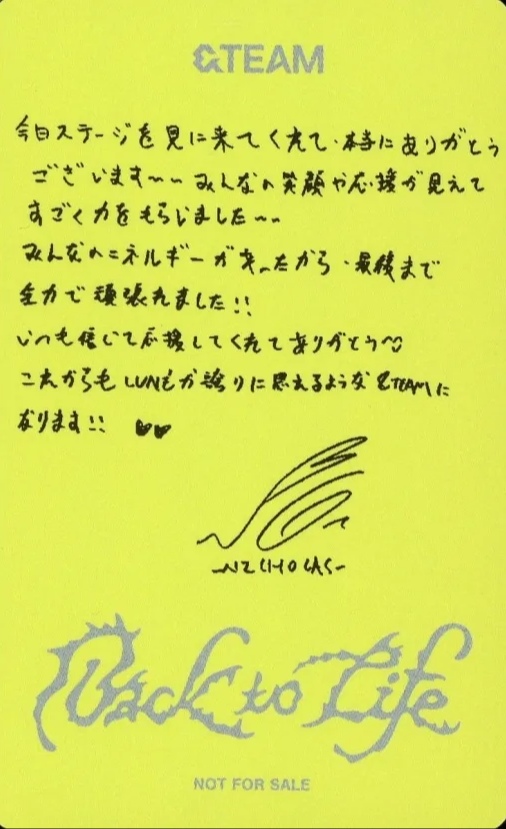 &TEAM
今日ステージを見に来てくれて、本当にありがとう
ございます~~みんなの笑顔や応援が見えて
すごく力をもらいました~~
みんなのエネルギーがあったから、最後まで
全力で頑張れました!!
いつも信じて応援してくれてありがとう♡
これからもLUNÉが誇りに思えるような&TEAMに
なります!! ♥♥
Back to Life
NOT FOR SALE